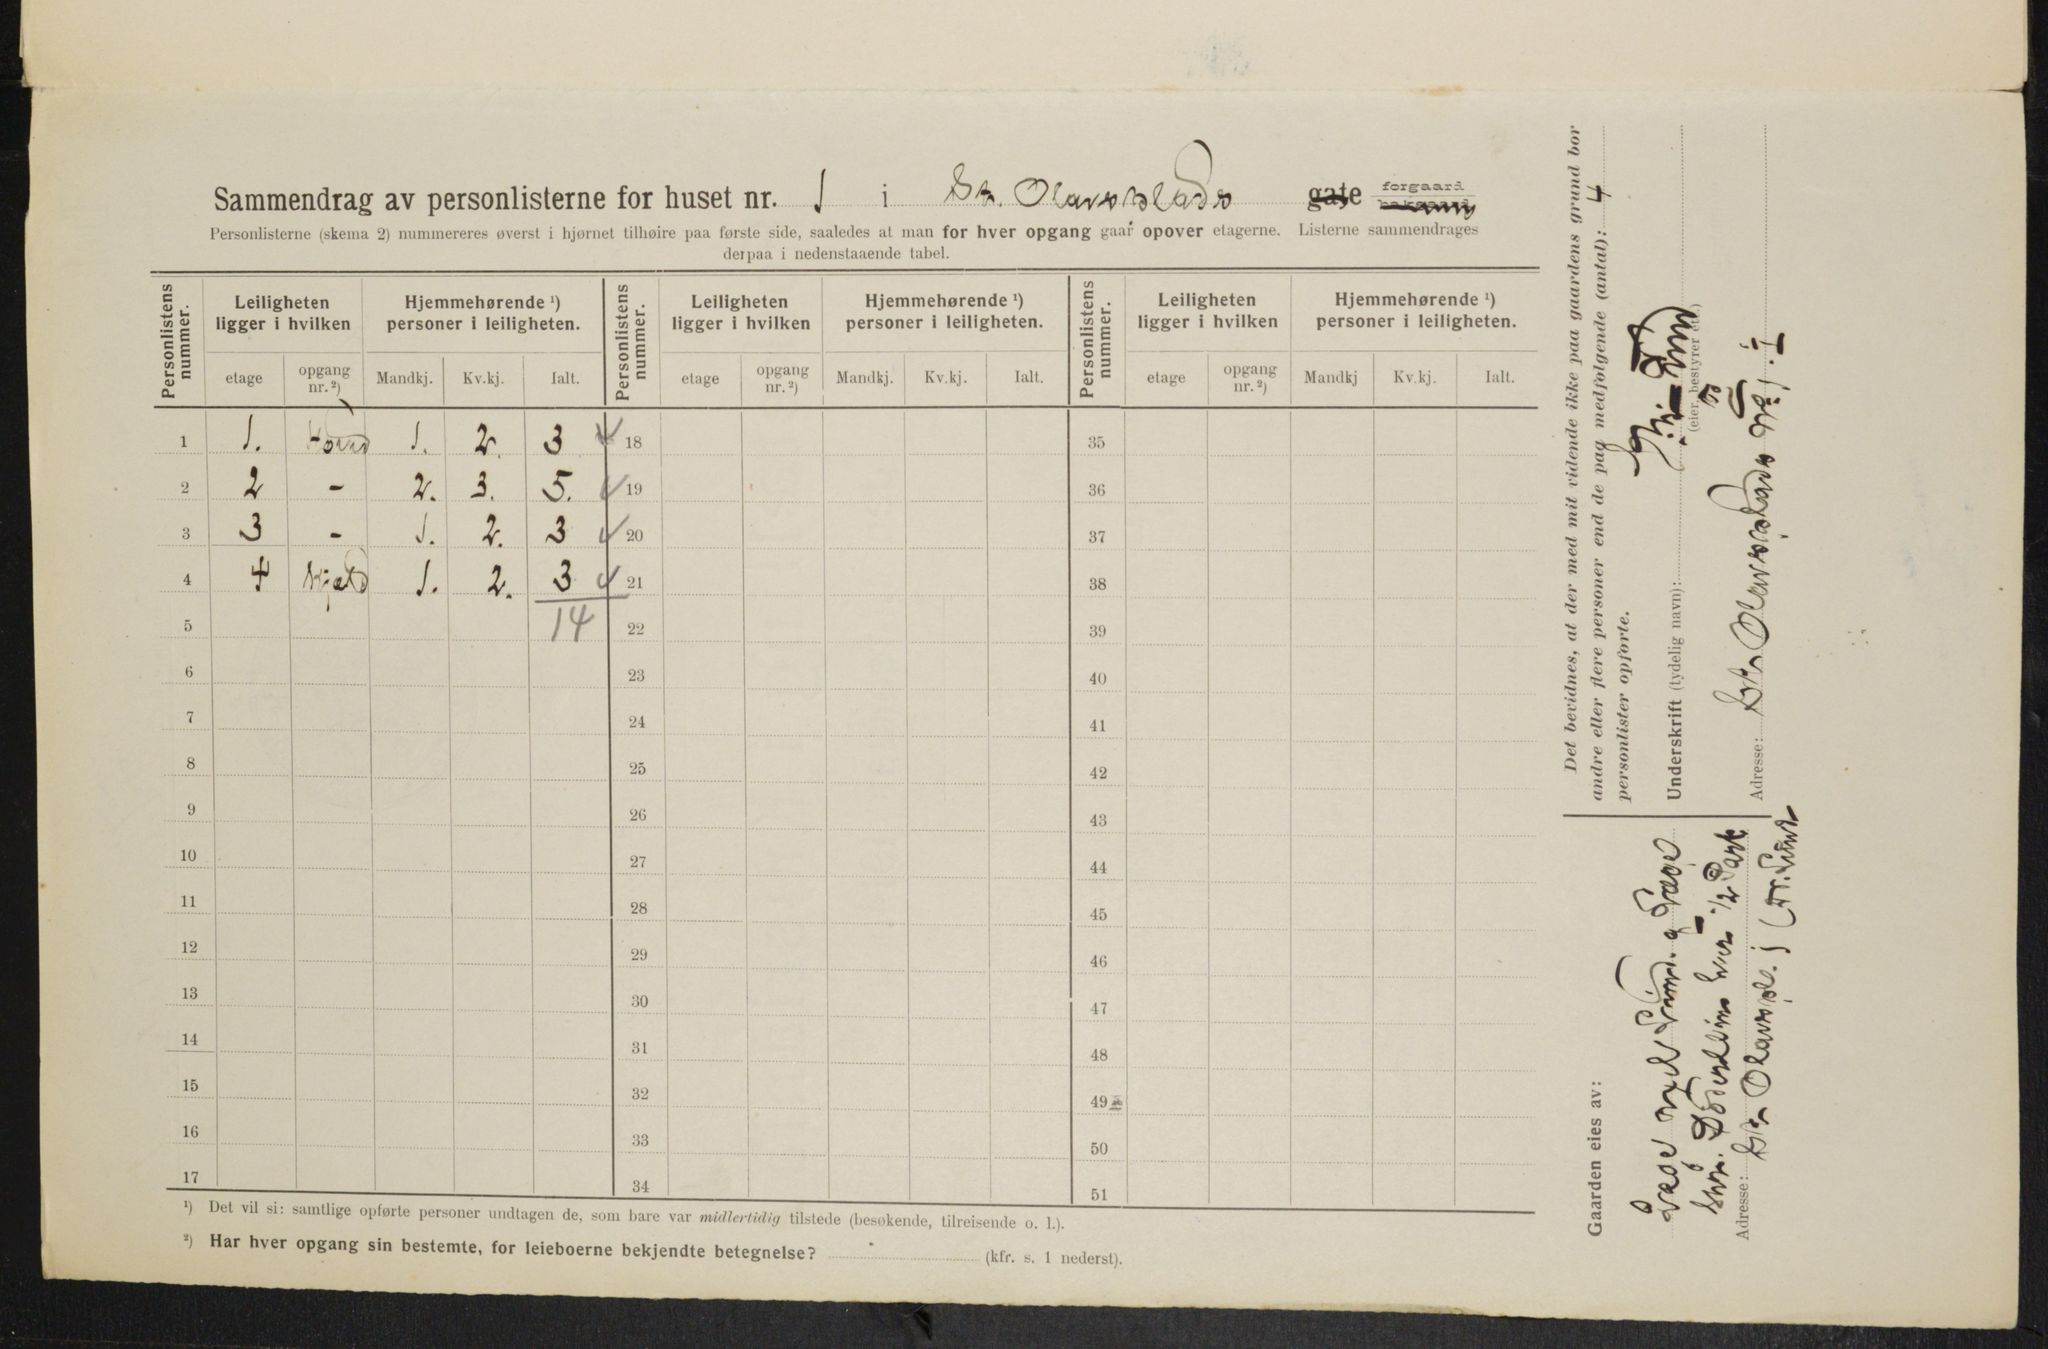 Sammendrag av personlisterne for huset nr. 1 i St. Olavsplads gate forgaard
Personlisterne (skema 2) nummereres øverst i hjørnet tilhøire paa første side, saaledes at man for hver opgang gaar opover etagerne. Listerne sammendrages
derpaa i nedenstaaende tabel.
Personlistens nummer. Leiligheten ligger i hvilken Hjemmehørende ¹) personer i leiligheten. Personlistens nummer. Leiligheten ligger i hvilken Hjemmehørende ¹) personer i leiligheten. Personlistens nummer. Leiligheten ligger i hvilken Hjemmehørende ¹) personer i leiligheten.
etage opgang nr. ²) Mandkj. Kv.kj. Ialt. etage opgang nr. ²) Mandkj. Kv.kj. Ialt. etage opgang nr. ²) Mandkj Kv.kj. Ialt.
1 1. Hoved 1. 2. 3 18 35
2 2 - 2. 3. 5. 19 36
3 3 - 1. 2. 3 20 37
4 4 1. 2. 3 21 38
5 14 22 39
6 23 40
7 24 41
8 25 42
9 26 43
10 27 44
11 28 45
12 29 46
13 30 47
14 31 48
15 32 49
16 33 50
17 34 51
¹) Det vil si: samtlige opførte personer undtagen de, som bare var midlertidig tilstede (besøkende, tilreisende o. l.).
²) Har hver opgang sin bestemte, for leieboerne bekjendte betegnelse? (kfr. s. 1 nederst).
Det bevidnes, at der med mit vidende ikke paa gaardens grund bor
andre eller flere personer end de paa medfølgende (antal): 4
personlister opførte.
Underskrift (tydelig navn):
(eier, bestyrer etc.)
Adresse: St. Olavsplads No 1. I
Gaarden eies av:
Lund
1/2 Part
Adresse: St. Olavspl. 1 (Fr. Lund